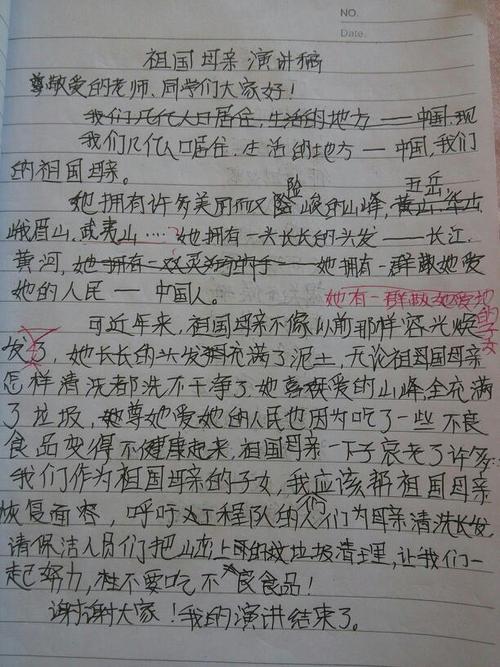 NO.
Date.
祖国母亲演讲稿
尊敬爱的老师、同学们大家好！
我们几代人口居住,生活的地方——中国,现
我们几代人口居住.生活的地方——中国,我们
的祖国母亲。
险 五岳
她拥有许多美丽而又险峻的山峰,黄山.华山
峨眉山.武夷山……她拥有一头长长的头发——长江.
黄河,她拥有一双灵巧的手——她拥有一群敬她爱
她的人民——中国人。
她有一群敬她爱她的子女
可近年来,祖国母亲不像以前那样容光焕
发了,她长长的头发充满了泥土,无论祖国母亲
怎样清洗都洗不干净了.她喜爱的山峰,全充满
了垃圾,她尊她爱她的人民也因为吃了一些不良
食品变得不健康起来,祖国母亲一下子衰老了许多.
我们作为祖国母亲的子女,我应该帮祖国母亲
们
恢复面容,呼吁工程队的人们为母亲清洗长发,
请保洁人员们把山上的垃圾清理,让我们一
起努力,不要吃不良食品!
谢谢大家!我的演讲结束了。